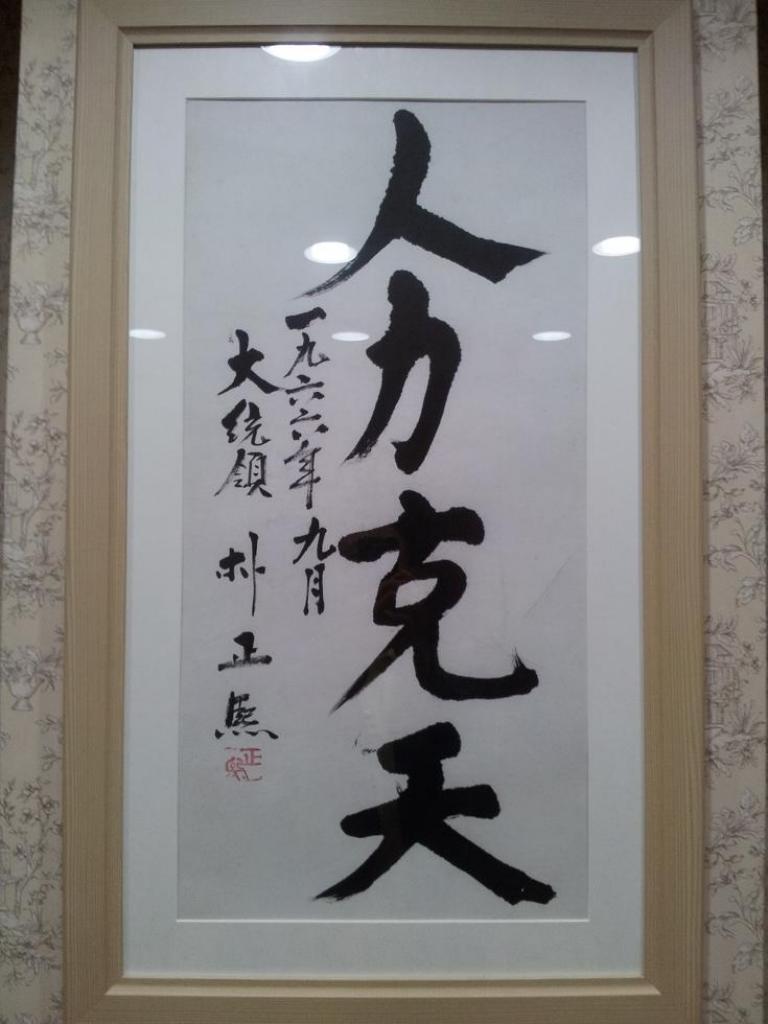 人力克天
一九六六年 九月
大統領 朴正熙
正熙